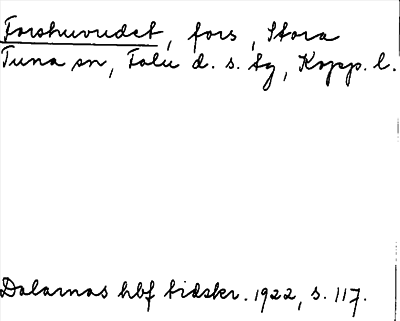 Forshuvudet, fors, Stora
Tuna sn, Falu d. s. tg, Kopp. l.
Dalarnas hbf tidskr. 1922, s. 117.